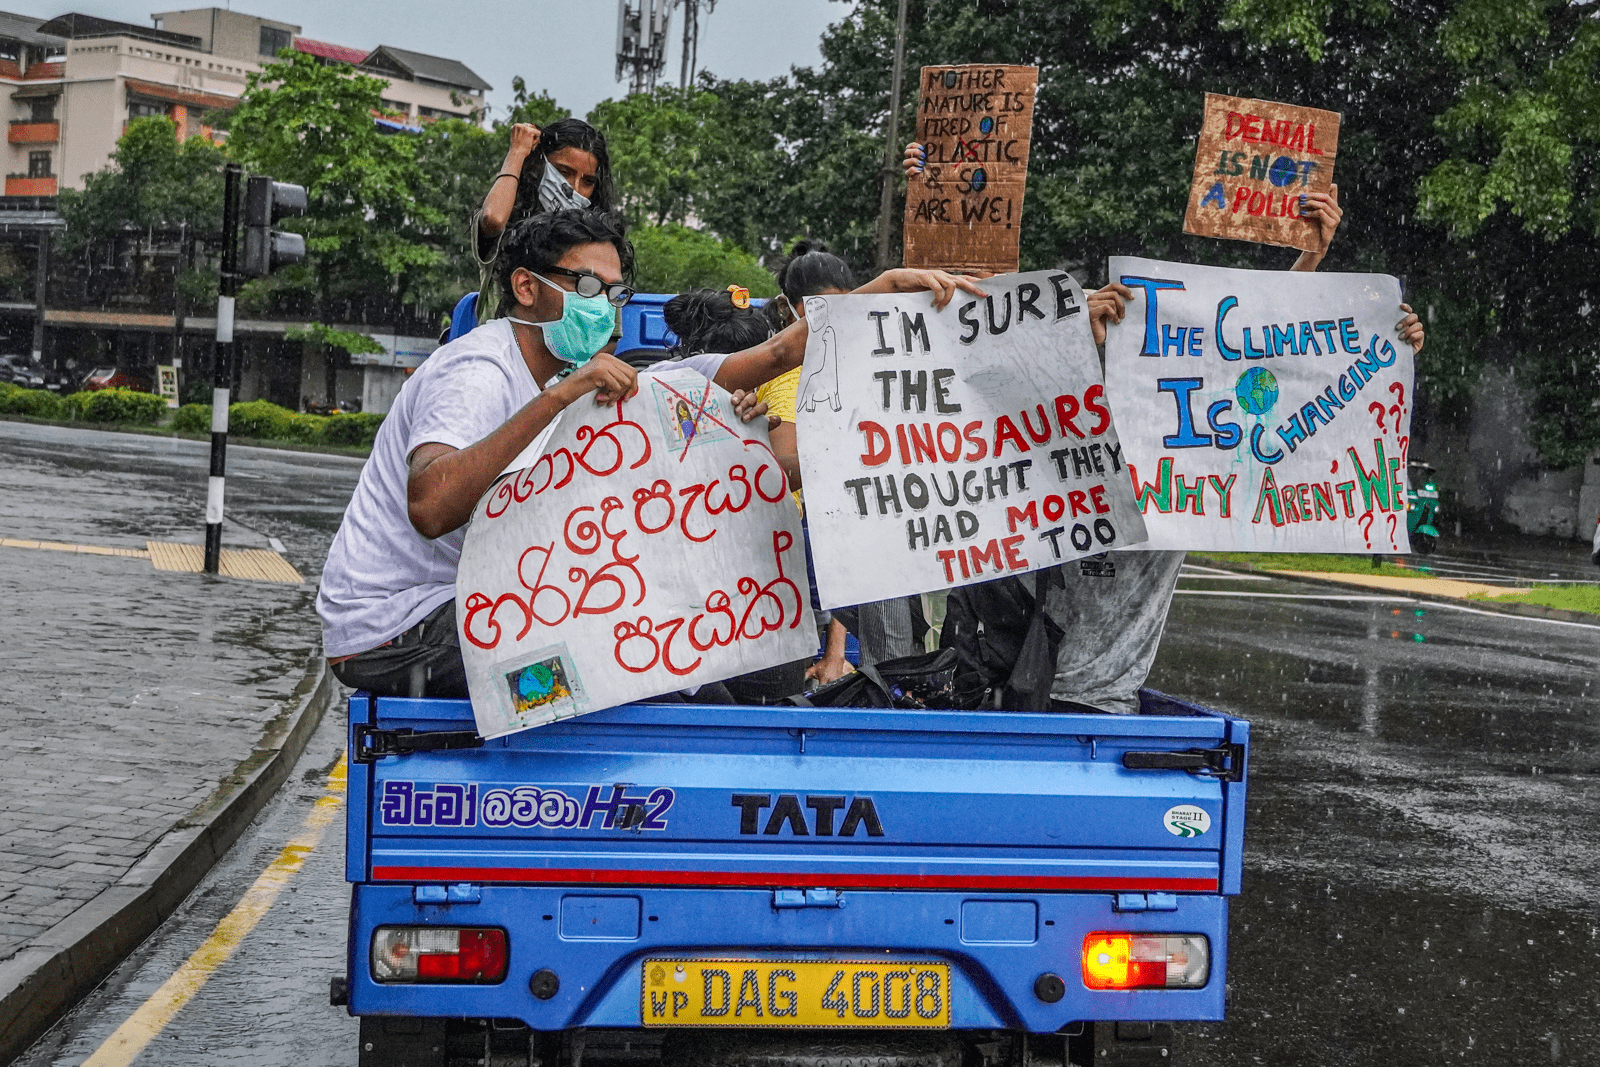 MOTHER
NATURE IS
TIRED OF
PLASTIC
& SO
ARE WE!
DENIAL
IS NOT
A POLICY
I'M SURE
THE
DINOSAURS
THOUGHT THEY
HAD MORE
TIME TOO
THE CLIMATE
IS CHANGING
WHY AREN'T WE
? ? ? ? ? ? ?
ගොන්
දෙපැයට
හරිත්
පැයක්
ඩීමෝ බට්ටා HT2
TATA
BHARAT
STAGE II
WP DAG 4008